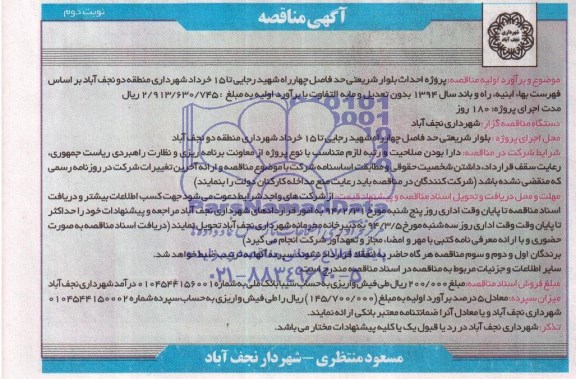 آگهی مناقصه
نوبت دوم
شهرداری
نجف آباد
موضوع و برآورد اولیه مناقصه: پروژه احداث بلوار شریعتی حد فاصل چهارراه شهید رجایی تا ۱۵ خرداد شهرداری منطقه دو نجف آباد بر اساس
فهرست بها، ابنیه، راه و باند سال ۱۳۹۴ بدون تعدیل و مابه التفاوت با برآورد اولیه به مبلغ : ۲/۹۱۳/۶۳۰/۷۴۵ ریال
مدت اجرای پروژه: ۱۸۰ روز
دستگاه مناقصه گزار: شهرداری نجف آباد
محل اجرای پروژه : بلوار شریعتی حد فاصل چهارراه شهید رجایی تا ۱۵ خرداد شهرداری منطقه دو نجف آباد
شرایط شرکت در مناقصه: دارا بودن صلاحیت و رتبه لازم متناسب با نوع پروژه از معاونت برنامه ریزی و نظارت راهبردی ریاست جمهوری،
رعایت سقف قرارداد، داشتن شخصیت حقوقی و مطابقت اساسنامه شرکت با موضوع مناقصه و ارائه آخرین تغییرات شرکت در روزنامه رسمی
که منقضی نشده باشد (شرکت کنندگان در مناقصه باید رعایت منع مداخله کارکنان دولت را بنمایند)
مهلت و محل دریافت و تحویل اسناد مناقصه و پیشنهاد قیمت: از شرکت های واجد شرایط دعوت می شود جهت کسب اطلاعات بیشتر و دریافت
اسناد مناقصه تا پایان وقت اداری روز پنج شنبه مورخ ۹۴/۲/۳۱ به امور قراردادهای شهرداری نجف آباد مراجعه و پیشنهادات خود را حداکثر
تا پایان وقت اداری روز سه شنبه مورخ ۹۴/۳/۵ به دبیرخانه محرمانه شهرداری نجف آباد تحویل نمایند (دریافت اسناد مناقصه به صورت
حضوری و با ارائه معرفی نامه کتبی با مهر و امضا، مجاز و تعهدآور شرکت انجام می گیرد)
برندگان اول و دوم و سوم مناقصه هر گاه حاضر به انعقاد قرارداد نشوند سپرده آنها به ترتیب ضبط خواهد شد.
سایر اطلاعات و جزئیات مربوط به مناقصه در اسناد مناقصه مندرج است.
مبلغ فروش اسناد مناقصه: مبلغ ۲۰۰/۰۰۰ ریال طی فیش واریزی به حساب سیبا بانک ملی به شماره ۰۱۰۴۵۴۴۱۵۶۰۰۱ درآمد شهرداری نجف آباد
میزان سپرده: معادل ۵ درصد برآورد اولیه به مبلغ (۱۴۵/۷۰۰/۰۰۰) ریال را طی فیش واریزی به حساب سپرده به شماره ۰۱۰۴۵۴۴۱۵۰۰۰۲
شهرداری نجف آباد و یا معادل آنرا ضمانتنامه معتبر بانکی ارائه نمایند.
تذکر: شهرداری نجف آباد در رد یا قبول یک یا کلیه پیشنهادات مختار می باشد.
۰۲۱-۸۸۳۴۹۶۷۰-۵
مسعود منتظری – شهردار نجف آباد